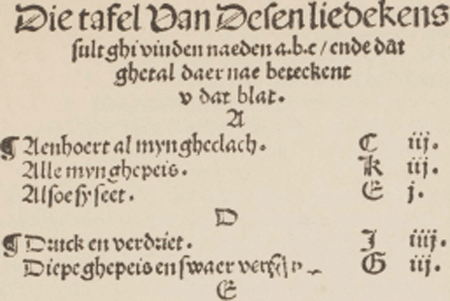 Die tafel Van Desen liedekens
sult ghi vinden naeden a.b.c / ende dat
ghetal daer nae beteckent
v dat blat.
A
¶ Aenhoert al myn gheclach. C iij.
Alle myn ghepeis. K iij.
Alsoe sy seet. E j.
D
¶ Druck en verdriet. J iiij.
Diepe ghepeis en swaer G iij.
E